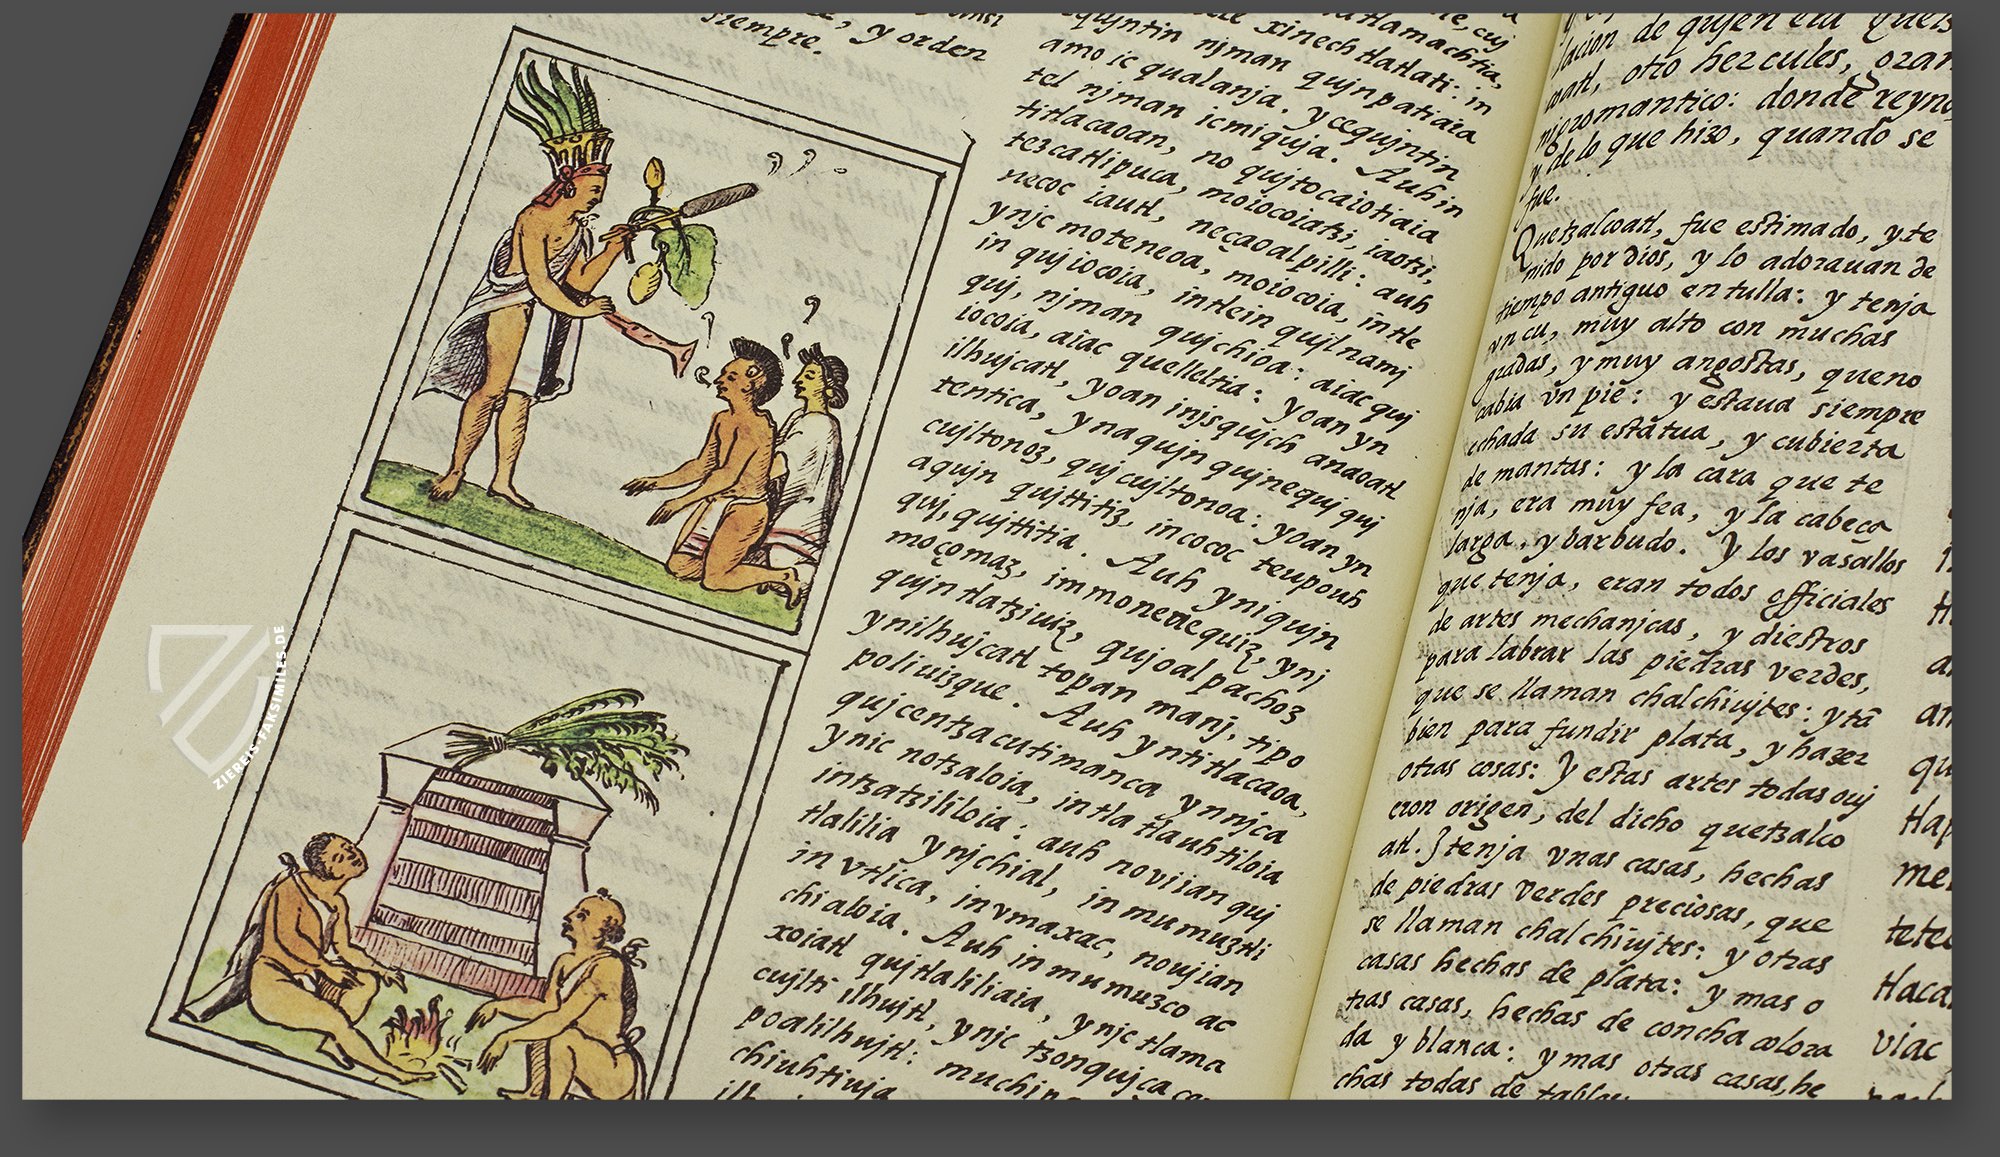 siempre.
, y orden
amo ic qualanja. ycequjntin
tel njman icmiquja. Auh in
titlacaoan, no qujtocaiotiaia
tezcatlipuca, moiocoiatzi, iaotzi,
necoc iautl, neçaoalpilli: auh
ynjc moteneoa, moiocoia, in tle
in qujiocoia, intlein qujlnamj
quj, njman qujchioa: aiac quj
iocoia, aiac quelleltia: yoan yn
ilhujcatl, yoan injsqujch anaoatl
tentica, ynaqujn qujnequj quj
cujltonoz, qujcujltonoa: yoan yn
aqujn qujttitiz, in cococ teupouh
quj, qujttitia. Auh yniqujn
moçomaz, immonenequiz, ynj
qujn tlatzjuiz, qujoalpachoz
ynilhujcatl topan manj, tipo
poliuizque. Auh yntitlacaoa,
qujcentzacutimanca ynnjca
ynic notzaloia, intlatlauhtiloia
intzatzililoia: auh noviian quj
tlalilia ynjchial, in mumuztli
in vtlica, invmaxac, noujian
chialoia. Auh in mumuzco ac
xoiatl qujtlaliliaia, ynjc tlama
cujlti ilhujtl, ynjc tzonqujca ce
poalilhujtl: muchin
chiuhtiuja
lacion de qujen era Quets
coatl, otro hercules, gran
njgromantico: donde reyno
y de lo que hizo, quando se
fue.
Quetzalcoatl, fue estimado, y te
nido por dios, y lo adorauan de
tiempo antiguo en tulla: y tenja
vn cu, muy alto con muchas
gradas, y muy angostas, que no
cabia vn pie: y estaua siempre
echada su estatua, y cubierta
de mantas: y la cara que te
nja, era muy fea, y la cabeça
larga, y barbudo. y los vasallos
que tenja, eran todos officiales
de artes mechanjcas, y diestros
para labrar las piedras verdes,
que se llaman chalchiujtes: y tã
bien para fundir plata, y hazer
otras cosas: Y estas artes todas ouj
eron origen, del dicho quetzalco
atl. Y tenja vnas casas, hechas
de piedras verdes preciosas, que
se llaman chalchiujtes: y otras
casas hechas de plata: y mas o
tras casas, hechas de concha colora
da y blanca: y mas otras casas, he
chas todas de tablas:
ZIEREIS-FAKSIMILES.DE